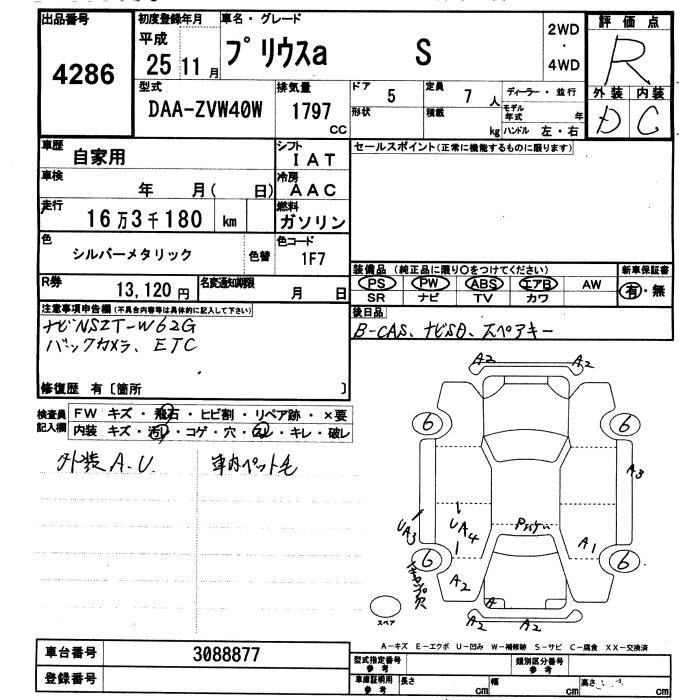 出品番号
4286
初度登録年月
平成
25 11 月
車名・グレード
プリウスa S
2WD
・
4WD
評価点
R
外装 内装
D C
型式
DAA-ZVW40W
排気量
1797
cc
ドア
5
形状
定員
7 人
積載
kg
ディーラー・並行
モデル年式 年
ハンドル 左・右
車歴
自家用
シフト
IAT
車検
年 月( 日)
冷房
AAC
走行
16万3千180 km
燃料
ガソリン
色
シルバーメタリック
色替
色コード
1F7
R券
13,120円
名変通知期限
月 日
セールスポイント(正常に機能するものに限ります)
装備品 (純正品に限り○をつけてください)
新車保証書
PS PW ABS エアB AW
有・無
SR ナビ TV カワ
後日品
B-CAS、ナビSD、スペアキー
注意事項申告欄(不具合内容等は具体的に記入して下さい)
ナビNSZT-W62G
バックカメラ、ETC
修復歴 有〔箇所 〕
検査員
記入欄
FW キズ・飛石・ヒビ割・リペア跡・×要
内装 キズ・汚レ・コゲ・穴・スレ・キレ・破レ
外装A.U.
車内ペット毛
A2 A2
6 6
A3
UA3
UA4
A1
6 6
A2
A
A2 A2
スペア
A-キズ E-エクボ U-凹み W-補修跡 S-サビ C-腐食 XX-交換済
車台番号
3088877
登録番号
型式指定番号
参考
類別区分番号
参考
車庫証明用
参考
長さ cm
幅 cm
高さ cm